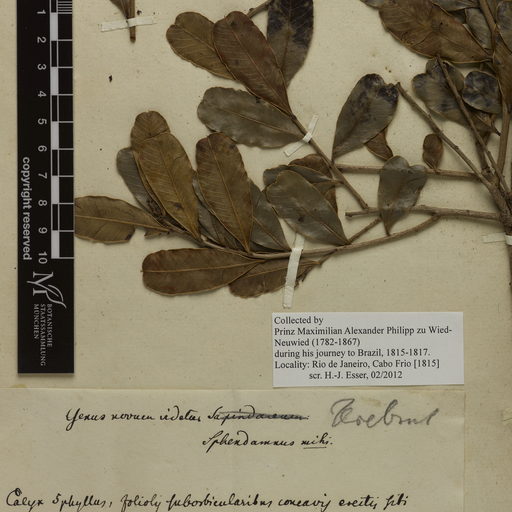 1
2
3
4
5
6
7
8
9
10
copyright reserved
BOTANISCHE
STAATSSAMMLUNG
MÜNCHEN
Collected by
Prinz Maximilian Alexander Philipp zu Wied-
Neuwied (1782-1867)
during his journey to Brazil, 1815-1817.
Locality: Rio de Janeiro, Cabo Frio [1815]
scr. H.-J. Esser, 02/2012
Genus novum videtur Sapindacearum
Sphendamnus mihi.
Calyx 5phyllus, foliolis suborbicularibus concavis erectis